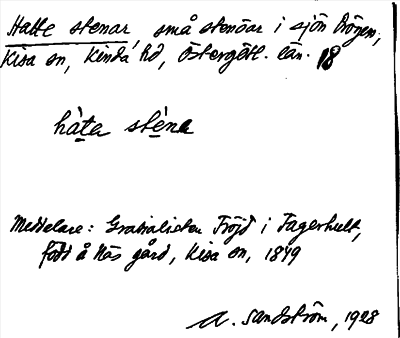 Hatte stenar, små stenöar i sjön Drögen,
Kisa sn, Kinda hd, Östergötl. län. 18
hàta stèna
Meddelare: Gratialisten Fröjd i Fagerhult,
född å Näs gård, Kisa sn, 1849
A. Sandström, 1928